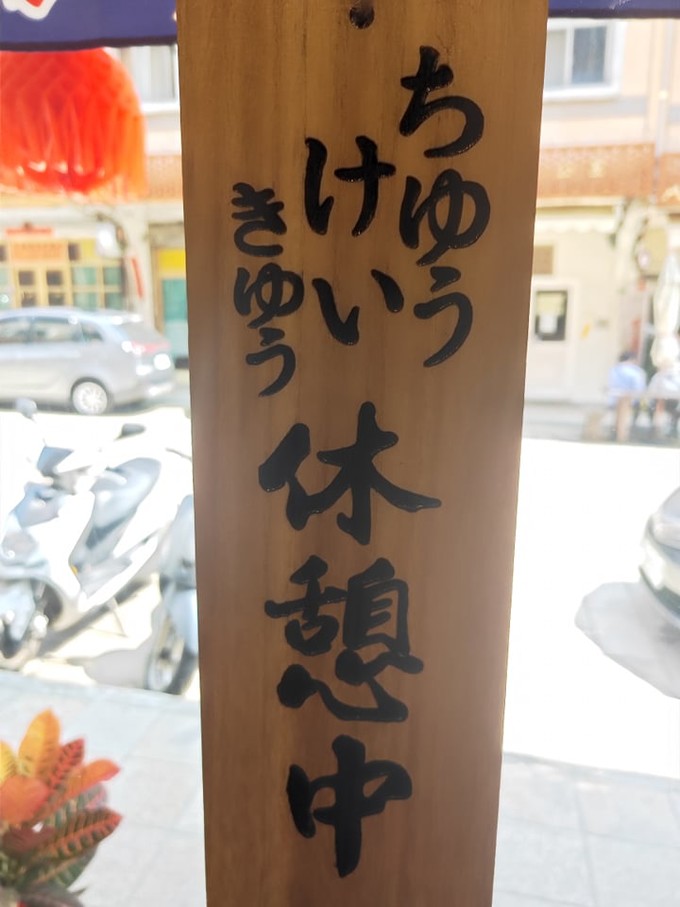 ちゅう
けい
きゅう
休憩中